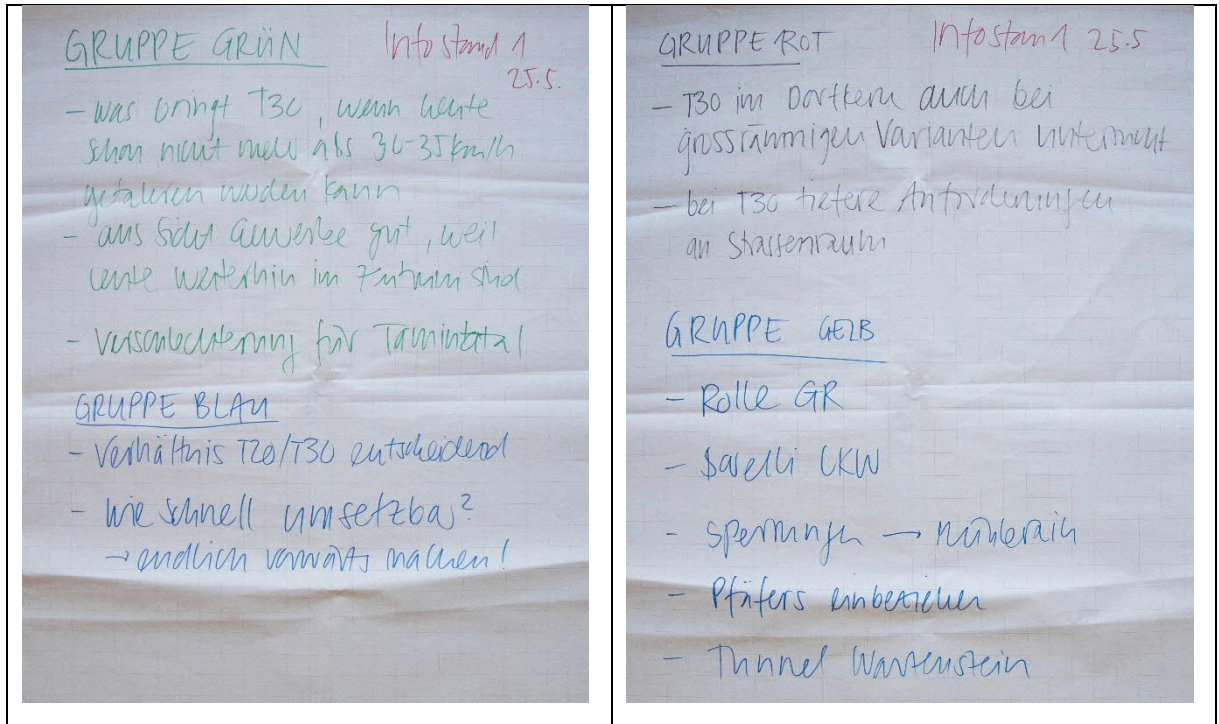 GRUPPE GRÜN
Infostand 1
25.5.
- was bringt T30, wenn heute
schon nicht mehr als 30-35 km/h
gefahren werden kann
- aus Sicht Gewerbe gut, weil
Leute weiterhin im Zentrum sind
- Verschlechterung für Taminatal
GRUPPE BLAU
- Verhältnis T20/T30 entscheidend
- Wie schnell umsetzbar?
→ endlich vorwärts machen!
GRUPPE ROT
Infostan 1 25.5
- T30 im Dorfkern auch bei
grossräumigen Varianten
- bei T30 tiefere Anforderungen
an Strassenraum
GRUPPE GELB
- Rolle GR
- LKW
- Sperrungen → Mühlerain
- Pfäfers einbeziehen
- Tunnel Wartenstein